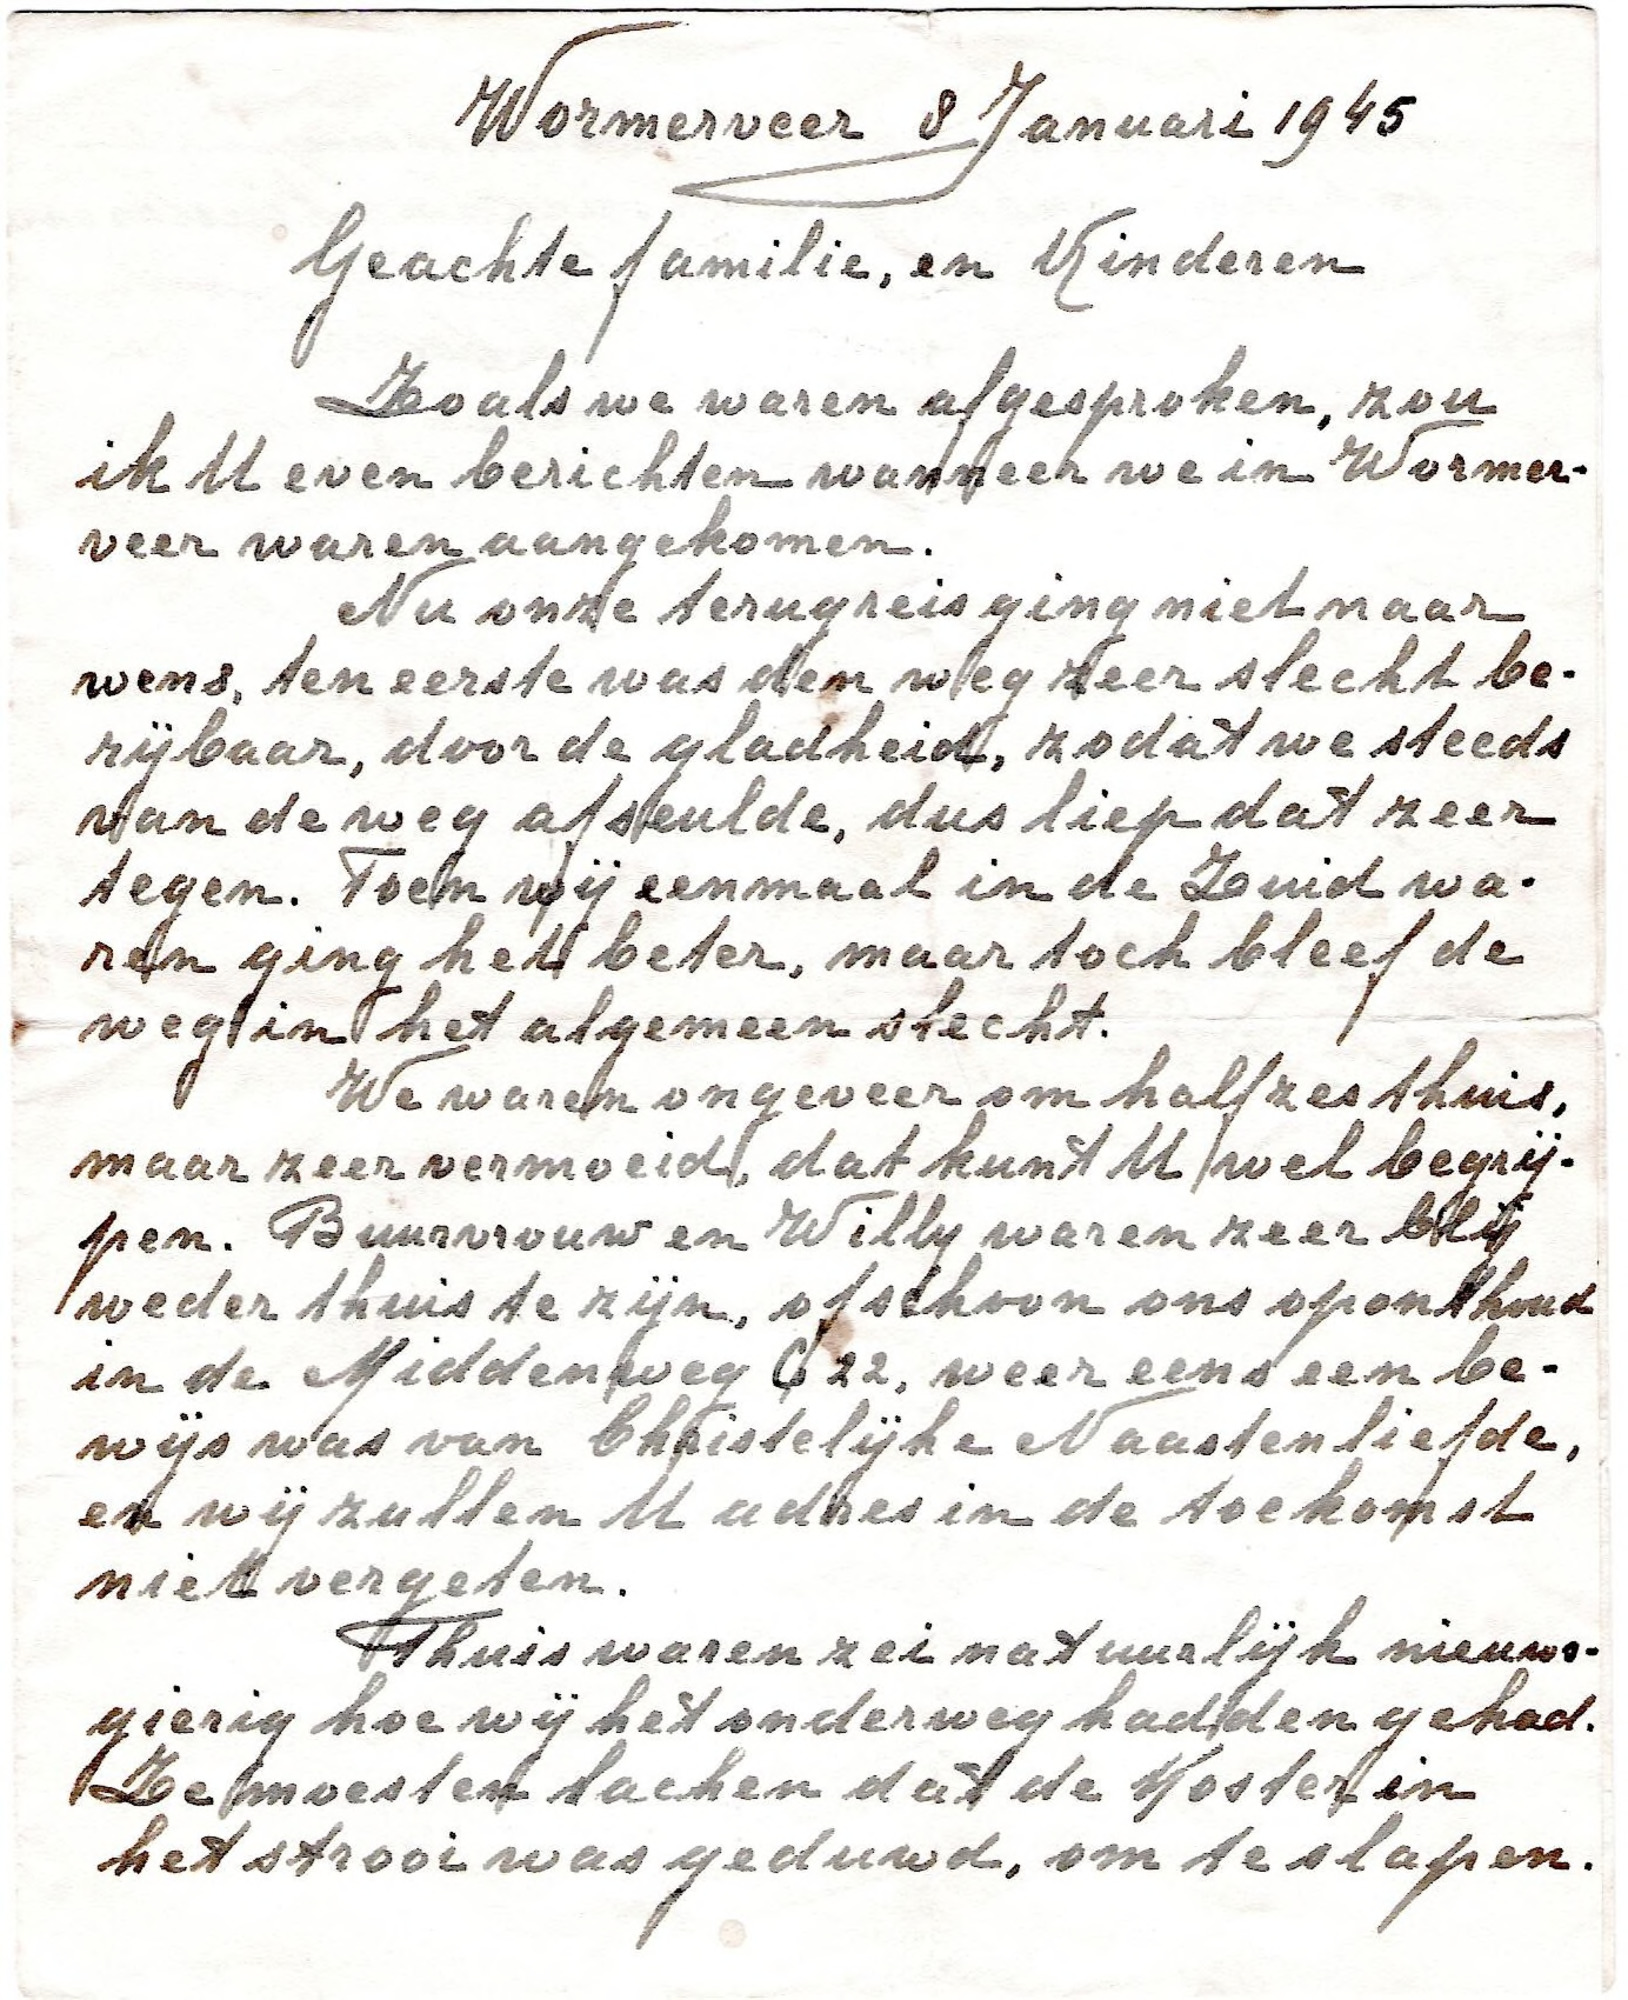 Wormerveer 8 Januari 1945
Geachte familie, en Kinderen
Zoals we waren afgesproken, zou
ik U even berichten wanneer we in Wormer-
veer waren aangekomen.
Nu onze terugreis ging niet naar
wens, ten eerste was den weg zeer slecht be-
rijbaar, door de gladheid, zodat we steeds
van de weg afseulde, dus liep dat zeer
tegen. Toen wij eenmaal in de Zuid wa-
ren ging het beter, maar toch bleef de
weg in het algemeen slecht.
We waren ongeveer om half zes thuis,
maar zeer vermoeid, dat kunt U wel begrij-
pen. Buurvrouw en Willy waren zeer blij
weder thuis te zijn, ofschoon ons oponthoud
in de Middenweg C 22, weer eens een be-
wijs was van Christelijke Naastenliefde,
en wij zullen U adres in de toekomst
niet vergeten.
Thuis waren zei natuurlijk nieuws-
gierig hoe wij het onderweg hadden gehad.
Ze moesten lachen dat de Koster in
het strooi was geduwd, om te slapen.